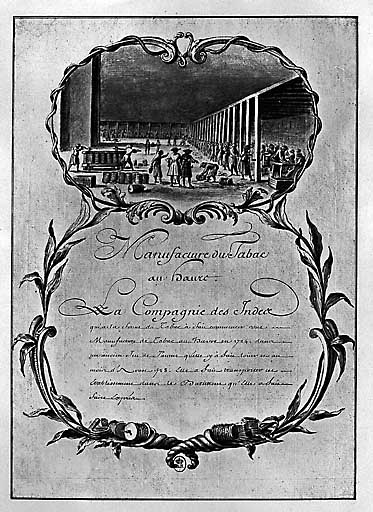 Manufacture du Tabac
au havre.
La Compagnie des Indes
qui a la ferme du Tabac a fait commencer une
Manufacture de Tabac au Havre en 1724. dans
un ancien Jeu de Paume quelle y a fait louer et au
mois d'Aoust 1728. Elle a fait transporter cet
établissement dans le Batiment qu'Elle a fait
faire Exprès